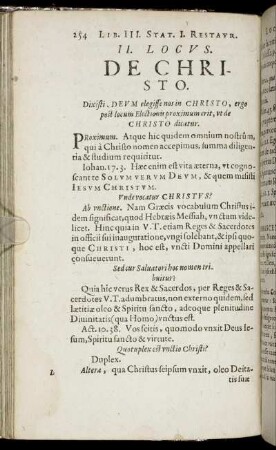 254 LIB. III. STAT. I. RESTAVR.
II. LOCVS.
DE CHRI-
STO.
Dixisti, DEVM elegisse nos in CHRISTO, ergo
post locum Electionis proximum erit, vt de
CHRISTO dicatur.
PROXIMUM. Atque hic quidem omnium nostrûm,
qui à Christo nomen accepimus, summa diligen-
tia & studium requiritur.
Iohan. 17. 3. Hæc enim est vita æterna, vt cogno-
scant te SOLVM VERVM DEVM, & quem misisti
IESVM CHRISTVM.
Vnde vocatur CHRISTVS?
Ab vnctione. Nam Græcis vocabulum Christus i-
dem significat, quod Hebræis Messiah, vnctum vide-
licet. Hinc quia in V. T. etiam Reges & Sacerdotes
in officii sui inauguratione, vngi solebant, & ipsi quo-
que CHRISTI, hoc est, vncti Domini appellari
consueuerunt.
Sed cur Saluatori hoc nomen tri-
buitur?
Quia hic verus Rex & Sacerdos, per Reges & Sa-
cerdotes V. T. adumbratus, non externo quidem, sed
lætitiæ oleo & Spiritu sancto, adeoque plenitudine
Diuinitatis (qua Homo) vnctus est.
Act. 10. 38. Vos scitis, quomodo vnxit Deus Ie-
sum, Spiritu sancto & virtute.
Quotuplex est vnctio Christi?
Duplex.
I. Altera, qua Christus seipsum vnxit, oleo Deita-
tis suæ